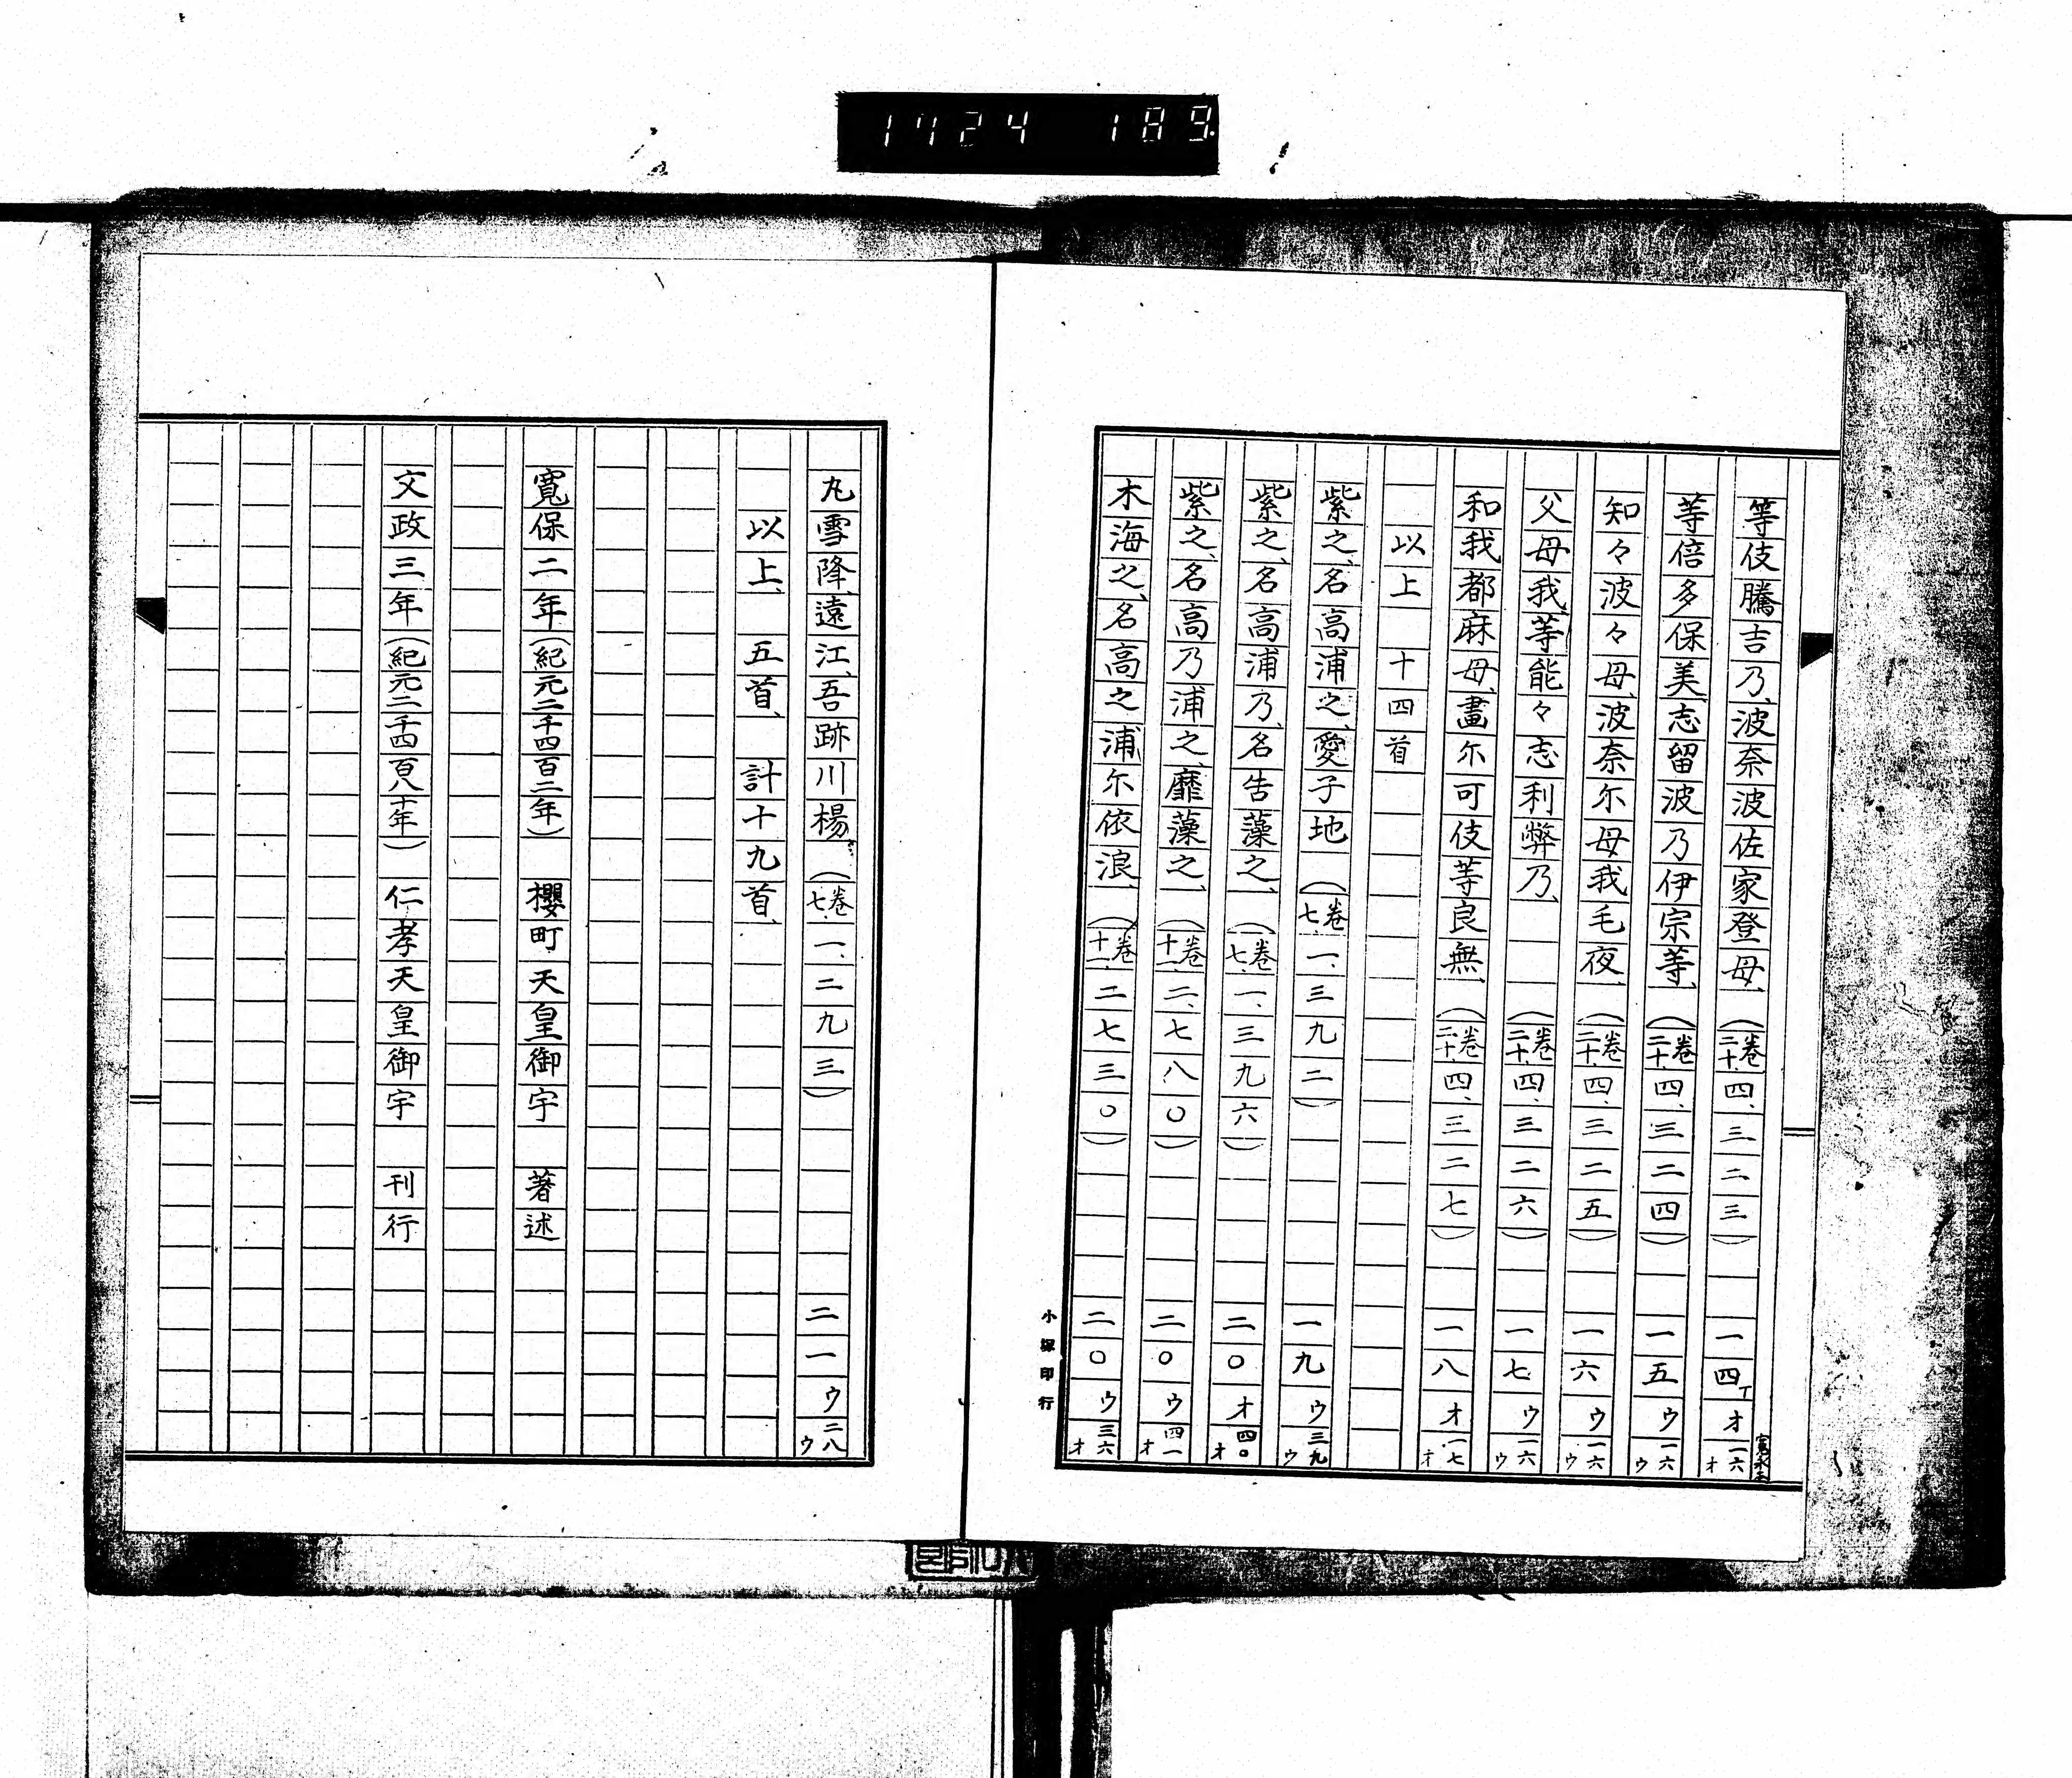 1724 189
等伎騰吉乃、波奈波佐家登母、（卷二十、四、三二三）一四丁オ一六オ
等倍多保美、志留波乃伊宗等、（卷二十、四、三二四）一五ウ一六ウ
知々波々母、波奈尓母我毛夜、（卷二十、四、三二五）一六ウ一六ウ
父母我、等能々志利弊乃、（卷二十、四、三二六）一七ウ一六ウ
和我都麻母、畫尓可伎等良無、（卷二十、四、三二七）一八オ一七オ
以上 十四首
紫之、名高浦之、愛子地（卷七、一、三九二）一九ウ三九ウ
紫之、名高浦乃、名告藻之、（卷七、一、三九六）二〇オ四〇オ
紫之、名高乃浦之、靡藻之、（卷十一、二、七八〇）二〇ウ四一オ
木海之、名高之浦尓依浪、（卷十一、二七三〇）二〇ウ三六オ
小塚印行
丸雪降、遠江、吾跡川楊、（卷七、一、二九三）二一ウ二八ウ
以上、五首、計十九首、
寬保二年（紀元二千四百二年）櫻町天皇御宇 著述
文政三年（紀元二千四百八十年）仁孝天皇御宇 刊行